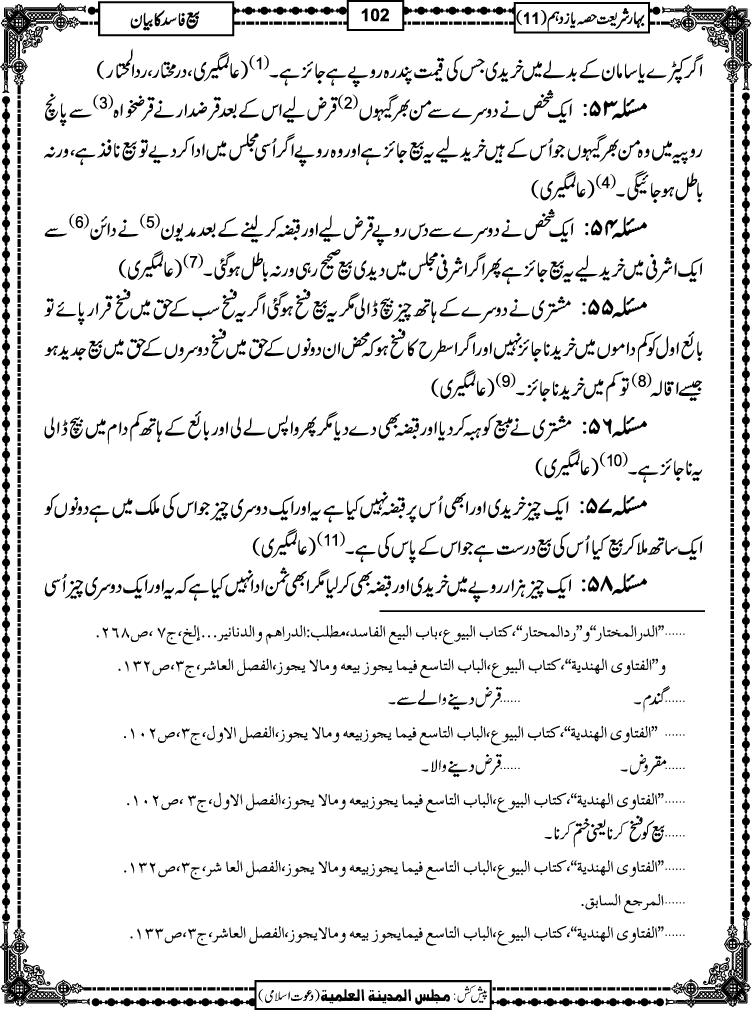 بہارِ شریعت حصہ یازدہم (11)
102
بیع فاسد کا بیان
اگر کپڑے یا سامان کے بدلے میں خریدی جس کی قیمت پندرہ روپے ہے جائز ہے۔(1) (عالمگیری، درمختار، ردالمحتار)
مسئلہ ۵۳: ایک شخص نے دوسرے سے من بھر گیہوں(2) قرض لیے اس کے بعد قرضدار نے قرضخواہ(3) سے پانچ
روپیہ میں وہ من بھر گیہوں جو اُس کے ہیں خرید لیے یہ بیع جائز ہے اور وہ روپے اگر اُسی مجلس میں ادا کر دیے تو بیع نافذ ہے، ورنہ
باطل ہو جائیگی۔(4) (عالمگیری)
مسئلہ ۵۴: ایک شخص نے دوسرے سے دس روپے قرض لیے اور قبضہ کر لینے کے بعد مدیون(5) نے دائن(6) سے
ایک اشرفی میں خرید لیے یہ بیع جائز ہے پھر اگر اشرفی مجلس میں دیدی بیع صحیح رہی ورنہ باطل ہو گئی۔(7) (عالمگیری)
مسئلہ ۵۵: مشتری نے دوسرے کے ہاتھ چیز بیچ ڈالی مگر یہ بیع فسخ ہو گئی اگر یہ فسخ سب کے حق میں فسخ قرار پائے تو
بائع اول کو کم داموں میں خریدنا جائز نہیں اور اگر اسطرح کا فسخ ہو کہ محض ان دونوں کے حق میں فسخ دوسروں کے حق میں بیع جدید ہو
جیسے اقالہ(8) تو کم میں خریدنا جائز۔(9) (عالمگیری)
مسئلہ ۵۶: مشتری نے مبیع کو ہبہ کر دیا اور قبضہ بھی دے دیا مگر پھر واپس لے لی اور بائع کے ہاتھ کم دام میں بیچ ڈالی
یہ ناجائز ہے۔(10) (عالمگیری)
مسئلہ ۵۷: ایک چیز خریدی اور ابھی اُس پر قبضہ نہیں کیا ہے یہ اور ایک دوسری چیز جو اس کی ملک میں ہے دونوں کو
ایک ساتھ ملا کر بیع کیا اُس کی بیع درست ہے جو اس کے پاس کی ہے۔(11) (عالمگیری)
مسئلہ ۵۸: ایک چیز ہزار روپے میں خریدی اور قبضہ بھی کر لیا مگر ابھی ثمن ادا نہیں کیا ہے کہ یہ اور ایک دوسری چیز اُسی
......”الدرالمختار“و”ردالمحتار“، کتاب البیوع، باب البیع الفاسد، مطلب: الدراهم والدنانیر...إلخ، ج۷، ص۲۶۸.
و”الفتاوی الهندیة“، کتاب البیوع، الباب التاسع فیما یجوز بیعه ومالا یجوز، الفصل العاشر، ج۳، ص۱۳۲.
......گندم۔ ......قرض دینے والے سے۔
...... ”الفتاوی الهندیة“، کتاب البیوع، الباب التاسع فیما یجوز بیعه ومالا یجوز، الفصل الاول، ج۳، ص۱۰۲.
......مقروض۔ ......قرض دینے والا۔
......”الفتاوی الهندیة“، کتاب البیوع، الباب التاسع فیما یجوز بیعه ومالا یجوز، الفصل الاول، ج۳، ص۱۰۲.
......بیع کو فسخ کرنا یعنی ختم کرنا۔
......”الفتاوی الهندیة“، کتاب البیوع، الباب التاسع فیما یجوز بیعه ومالا یجوز، الفصل العاشر، ج۳، ص۱۳۲.
......المرجع السابق.
......”الفتاوی الهندیة“، کتاب البیوع، الباب التاسع فیما یجوز بیعه ومالا یجوز، الفصل العاشر، ج۳، ص۱۳۳.
پیش کش: مجلس المدینة العلمیة (دعوت اسلامی)